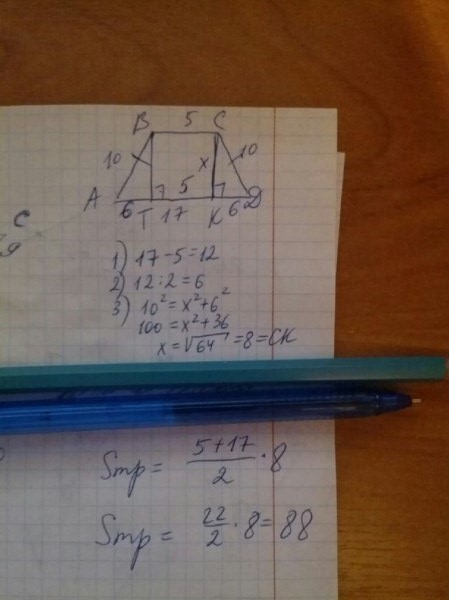 B 5 C
10 x 10
5
A 6 T 17 K 6 D
C
9
1) 17-5=12
2) 12:2=6
3) 10²=x²+6²
100=x²+36
x=√64=8=CK
Sтр= 5+17/2 · 8
Sтр= 22/2 · 8=88